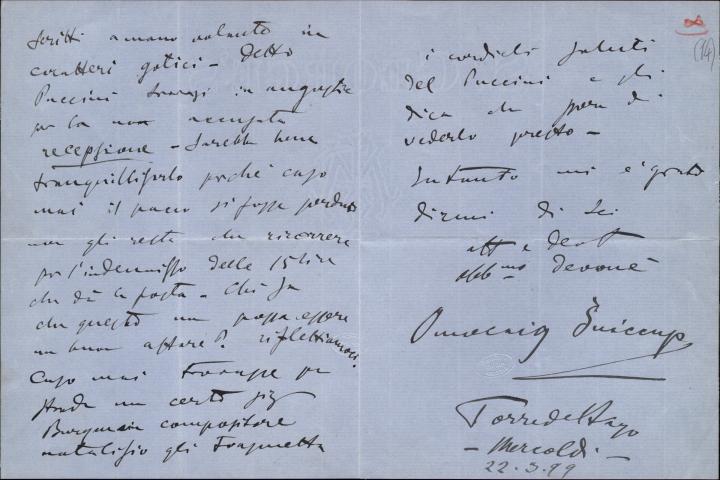 scritti a mano soltanto in
caratteri gotici - detto
Puccini trovasi in angustie
per la non accusata
recezione - Sarebbe bene
tranquillizzarlo poiché caso
mai il pacco si fosse perduto
non gli resta che ricorrere
per l'indennizzo delle 15 lire
che dà la posta - Chi sa
che questo non possa essere
un buon affare? riflettiamoci.
Caso mai trovasse per
strada un certo sig
Burgmein compositore
natalizio gli trasmetta
(14)
i cordiali saluti
del Puccini e gli
dica che spera di
vederlo presto -
Intanto mi è grato
dirmi di Lei
aff e devot
obb mo
Torre del Lago
- Mercoldi -
22.3.99